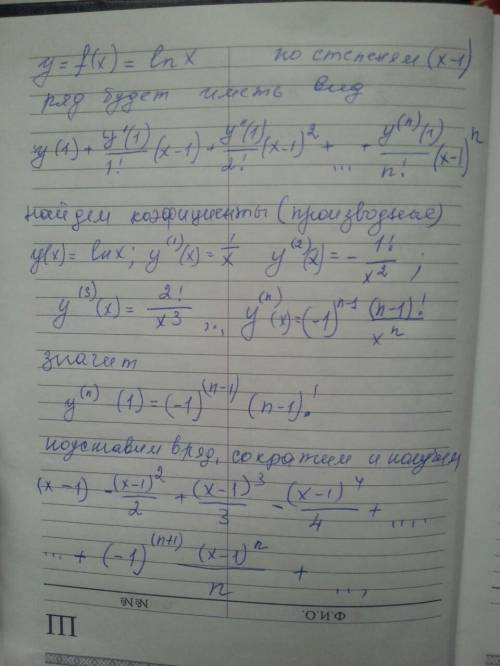 y = f(x) = ln x по степеням (x-1)
ряд будет иметь вид
y(1) + y'(1)/1! (x-1) + y''(1)/2! (x-1)^2 + ... + y^(n)(1)/n! (x-1)^n
найдем коэфициенты (производные)
y(x) = ln x; y^(1)(x) = 1/x y^(2)(x) = - 1!/x^2 ;
y^(3)(x) = 2!/x^3 ... y^(n)(x) = (-1)^(n-1) (n-1)!/x^n
значит
y^(n) (1) = (-1)^(n-1) (n-1)!
подставим в ряд, сократим и получим
(x-1) - (x-1)^2/2 + (x-1)^3/3 - (x-1)^4/4 + ....
... + (-1)^(n+1) (x-1)^n/n + ...,
Ф.И.О.
№№
Ш